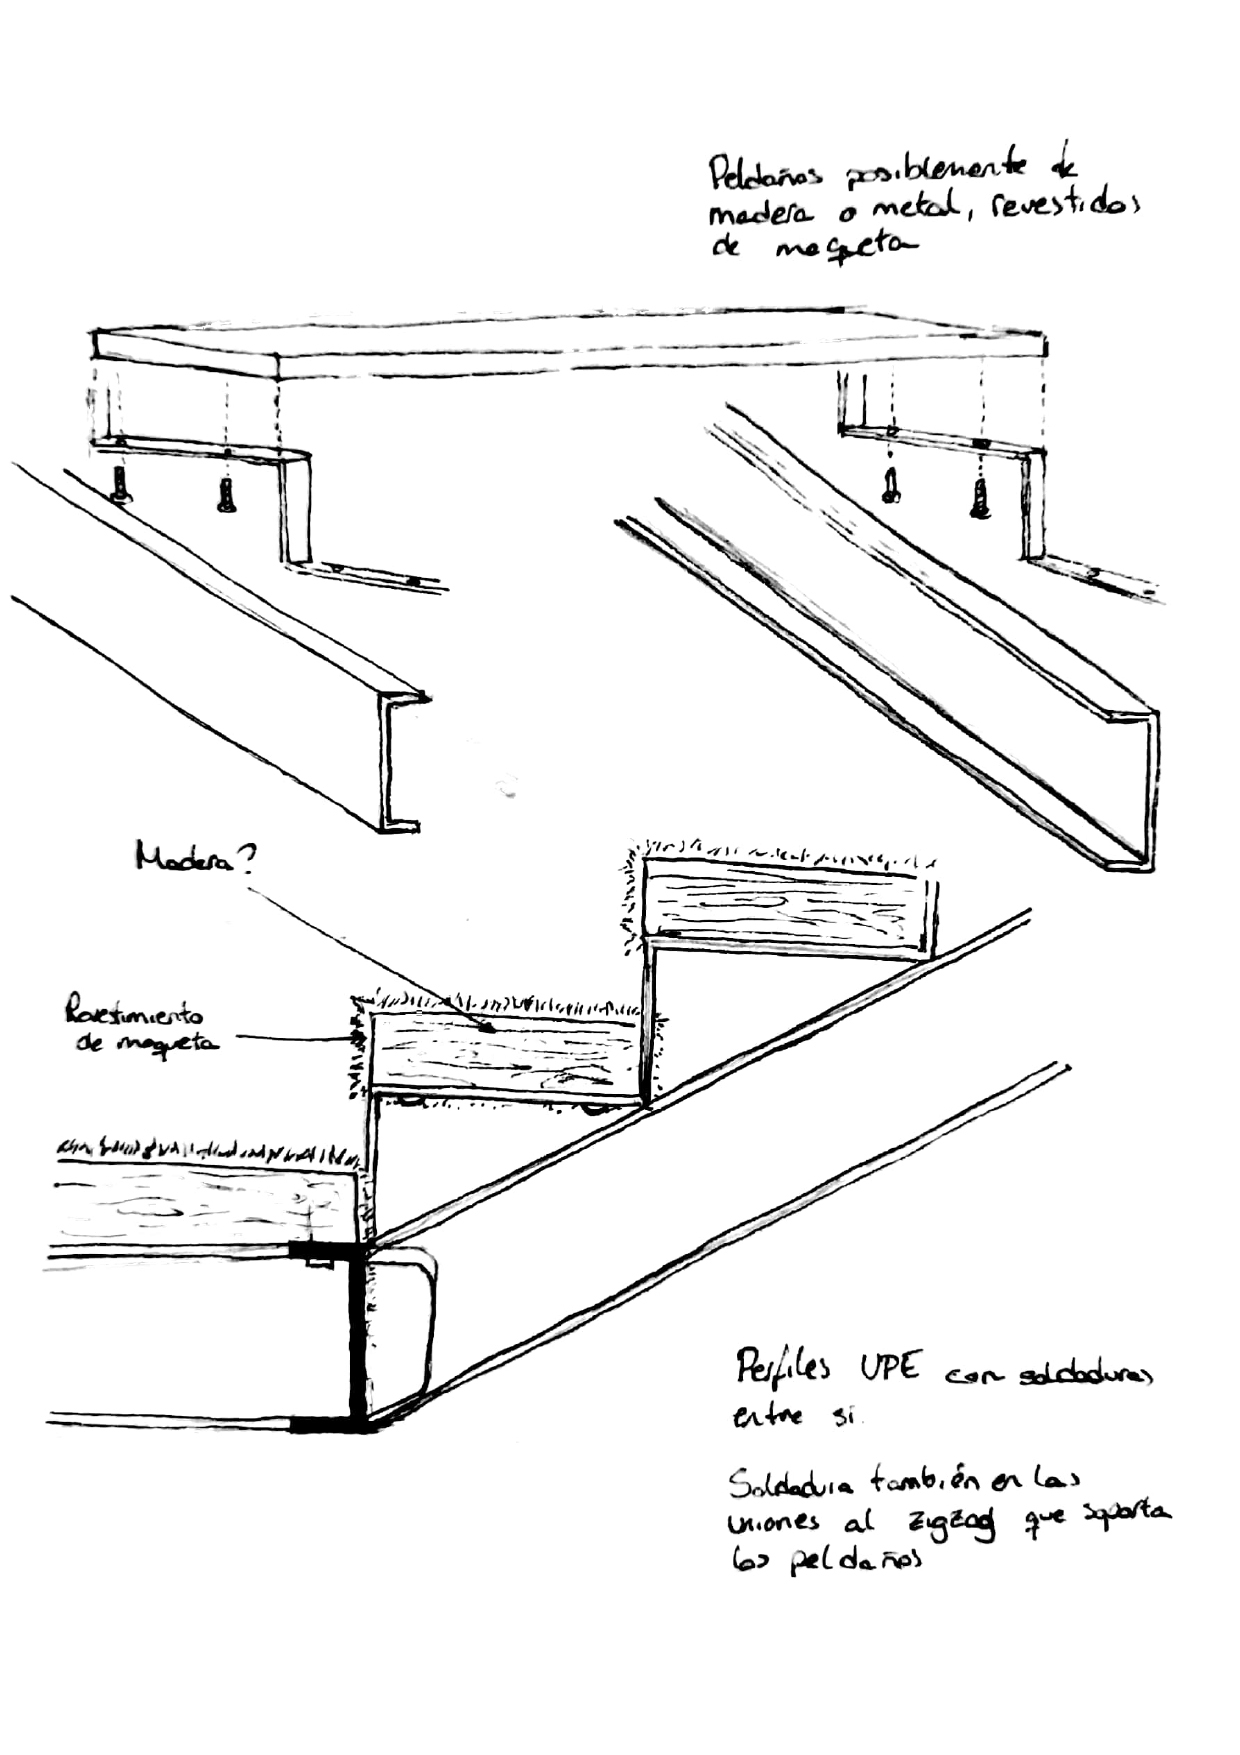 Peldaños posiblemente de
madera o metal, revestidos
de moqueta
Madera?
Revestimiento
de moqueta
Perfiles UPE con soldaduras
entre si.
Soldadura también en las
uniones al zigzag que soporta
los peldaños